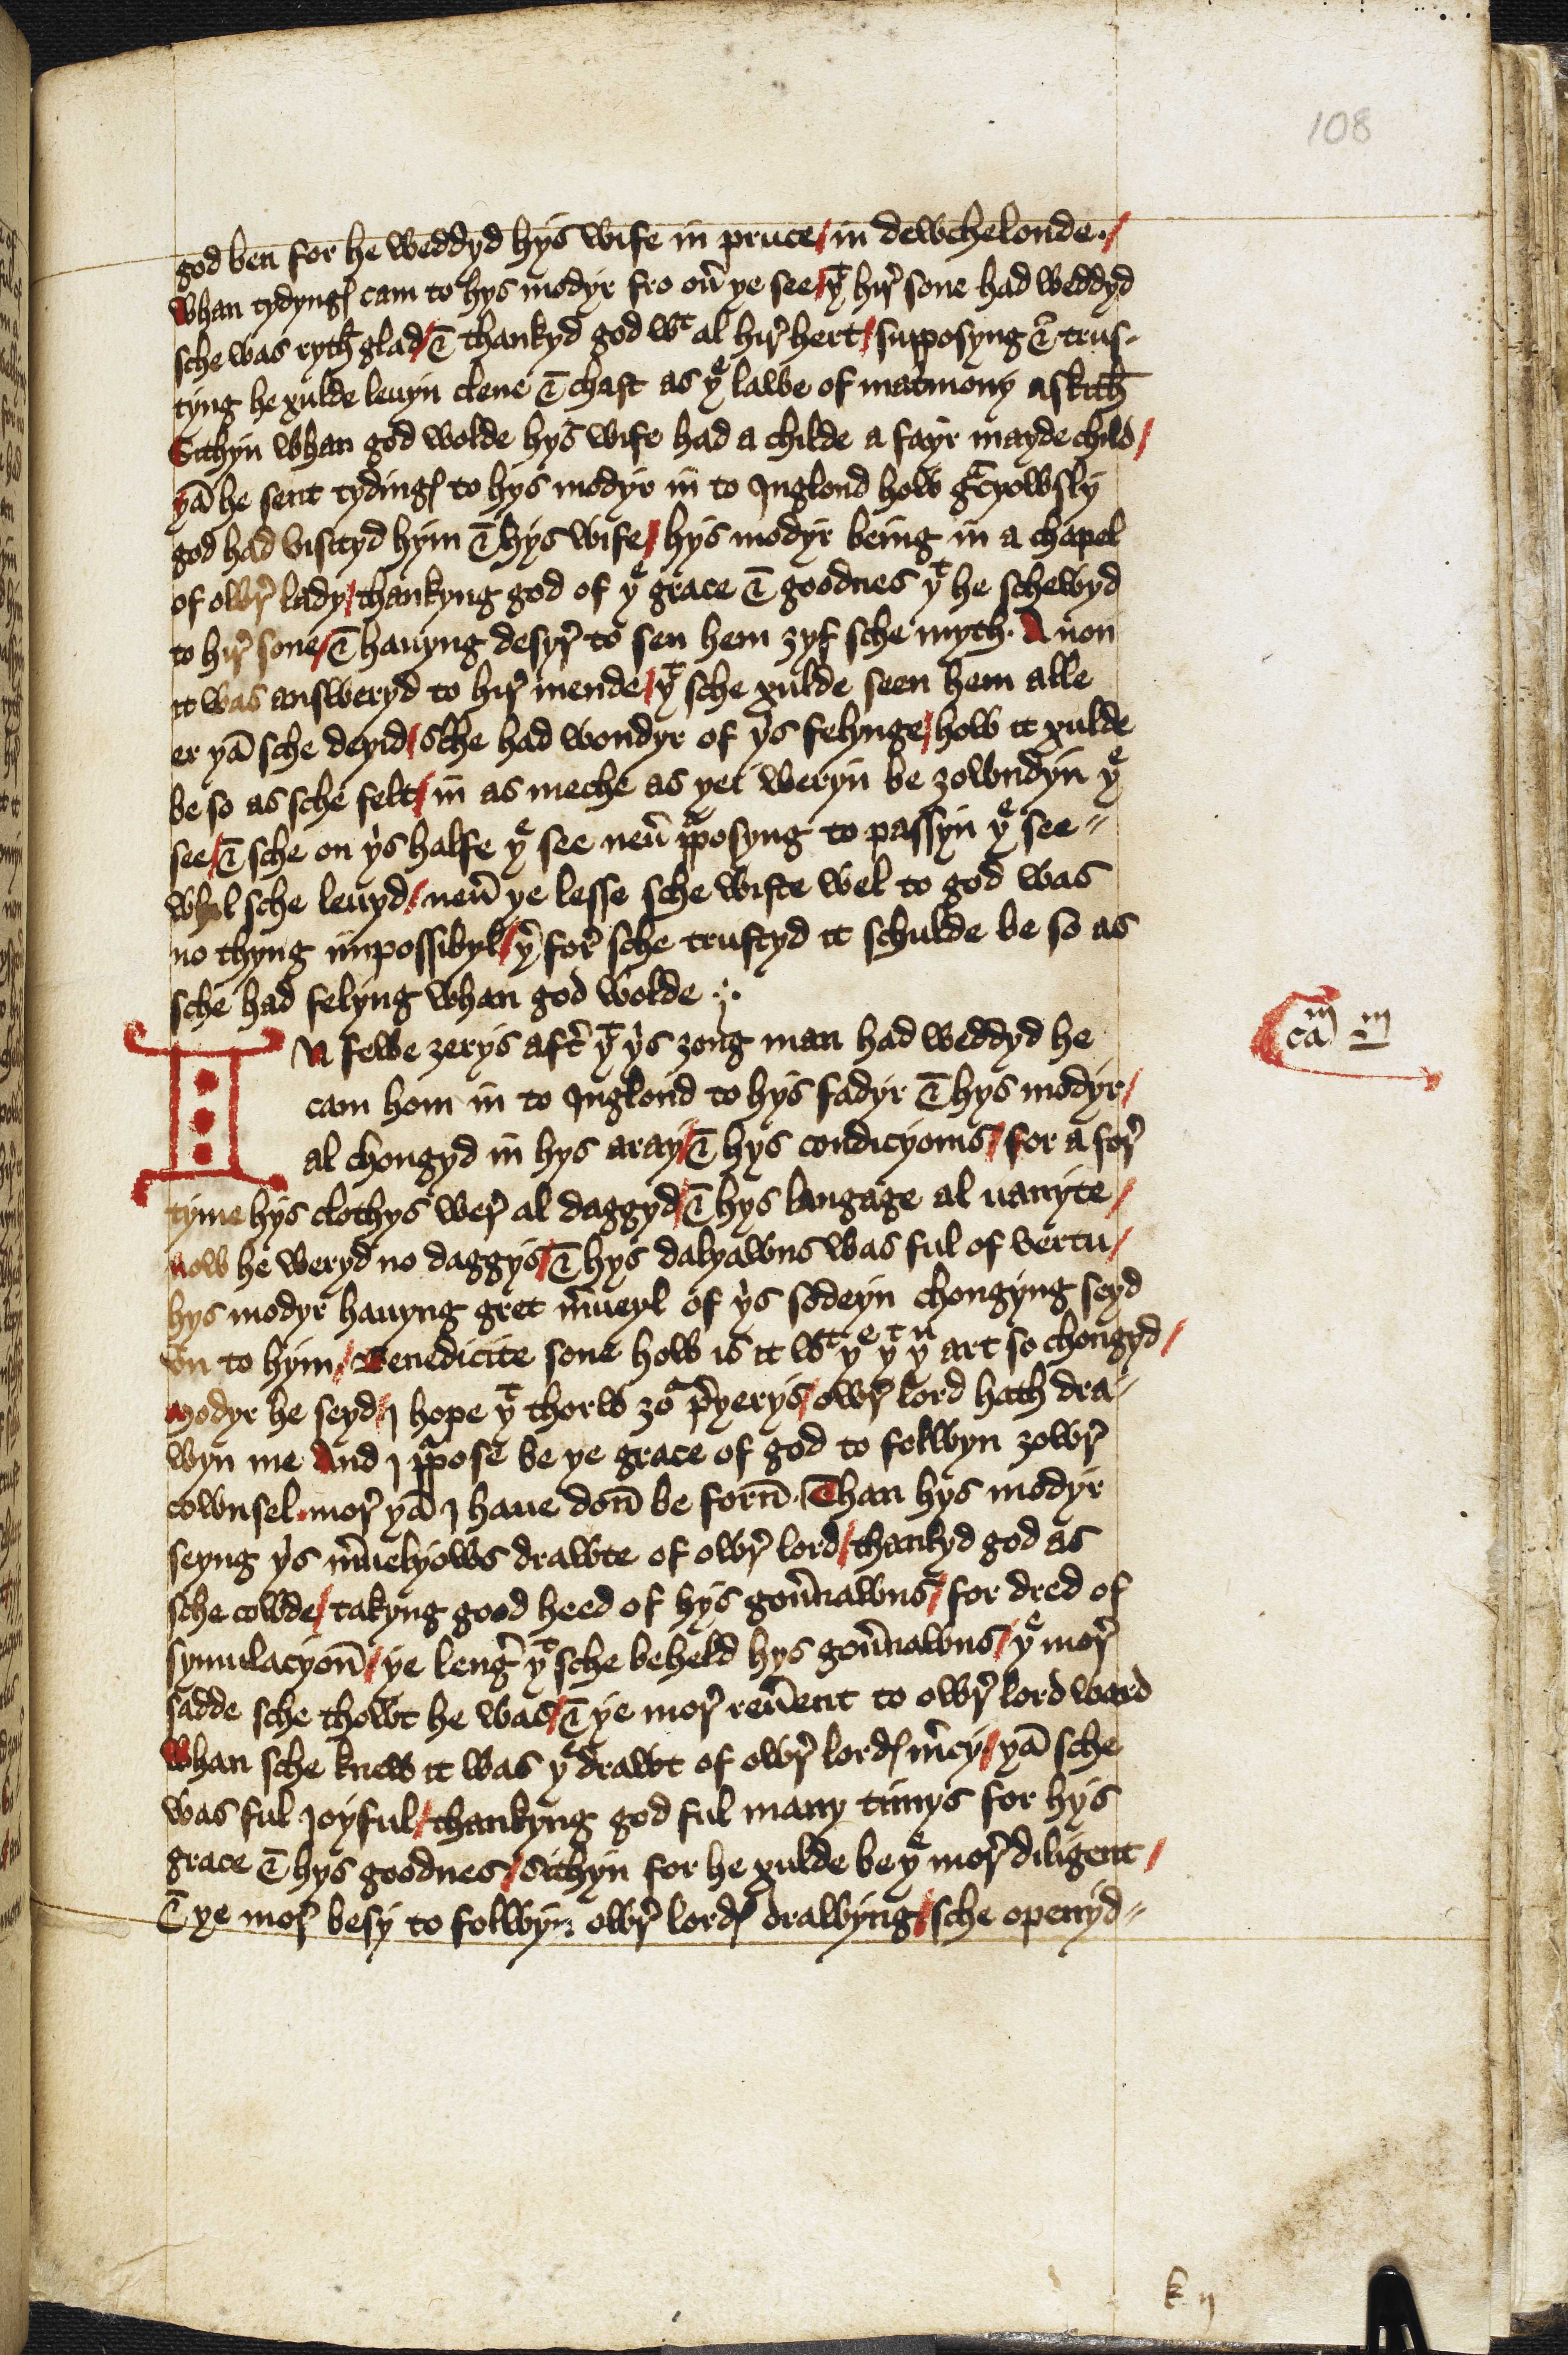 108
god ben for he weddyd hys wife in pruce / in dewchelonde . /
Whan tydyngꝭ cam to hys modyr fro ou̅ ye see / yᵗ hir̛ sone had weddyd
sche was ryth̅ glad / & thankyd god wᵗ al hir̛ hert / supposyng & trus-
tyng he xulde leuyn clene & chast as yᵉ lawe of mat̛mony askith̅
Sithyn whan god wolde hys wife had a childe a fayr mayde child /
ya̅ he sent tydingꝭ to hys modyr in to Inglond how gᵃcyowsly
god had visityd hym & hys wife / hys modyr being in a chapel
of owr̛ lady / thankyng god of yᵉ grace & goodnes yᵗ he schewyd
to hir̛ sone / & hauyng desyr̛ to sen hem ȝyf sche myth . A non
it was answeryd to hir̛ mende / yᵗ sche xulde seen hem alle
er ya̅ sche deyid / sche had wondyr of yⁱs felynge / how it xulde
be so as sche felt / in as meche as yei weryn be ȝowndyn yᵉ
see / & sche on yⁱs halfe yᵉ see neu̅ ꝑposyng to passyn yᵉ see =
whil sche leuyd / neu̅ ye lesse sche wiste wel to god was
no thyng impossibyl / y̛ for̛ sche trustyd it schulde be so as
sche had felyng whan god wolde .
IN fewe ȝerys aft̛ yᵗ yⁱs ȝong man had weddyd he
caᵐ iij
cam hom in to Inglond to hys fadyr & hys modyr /
al chongyd in hys aray / & hys condicyonis / for a for̛
tyme hys clothys wer̛ al daggyd / & hys langage al vanyte /
now he weryd no daggys / & hys dalyawns was ful of vertu /
hys modyr hauyng gret m̛ueyl of yⁱs sodeyn chongyng seyd
vn to hym / Benedicite sone how is it wᵗ yᵉ yᵗ yᵘ art so chongyd /
Modyr he seyd / I hope yᵗ thorw ȝoʳ p̛yerys / owr̛ lord hath dra-
wyn me And I ꝑpose be ye grace of god to folwyn ȝowr̛
cownsel . mor̛ ya̅ I haue don̅ be forn̅ . Than hys modyr
seyng yⁱs m̛uelyows drawte of owr̛ lord / thankyd god as
sche cowde / takyng good heed of hys gou̅nawns / for dred of
symulacyon̅ / ye leng̛ yᵗ sche beheld hys gou̅nawns / yᵉ mor̛
sadde sche thowt he was / & ye mor̛ reu̅ent to owr̛ lord ward
Whan sche knew it was yᵉ drawt of owr̛ lordꝭ m̛cy / ya̅ sche
was ful Ioyful / thankyng god ful many timys for hys
grace & hys goodnes / sithyn for he xulde be yᵉ mor̛ diligent /
& ye mor̛ besy to folwyn owr̛ lordꝭ drawyng / sche openyd =
k ij